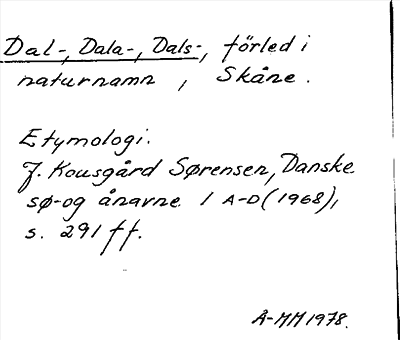 Dal-, Dala-, Dals-, förled i
naturnamn, Skåne.
Etymologi.
J. Kousgård Sørensen, Danske
sø- og ånavne 1 A-D (1968),
s. 291 ff.
Å-MM 1978.